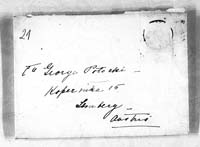 21
To George Potocki —
Kopernika 15
Lemberg —
Austria